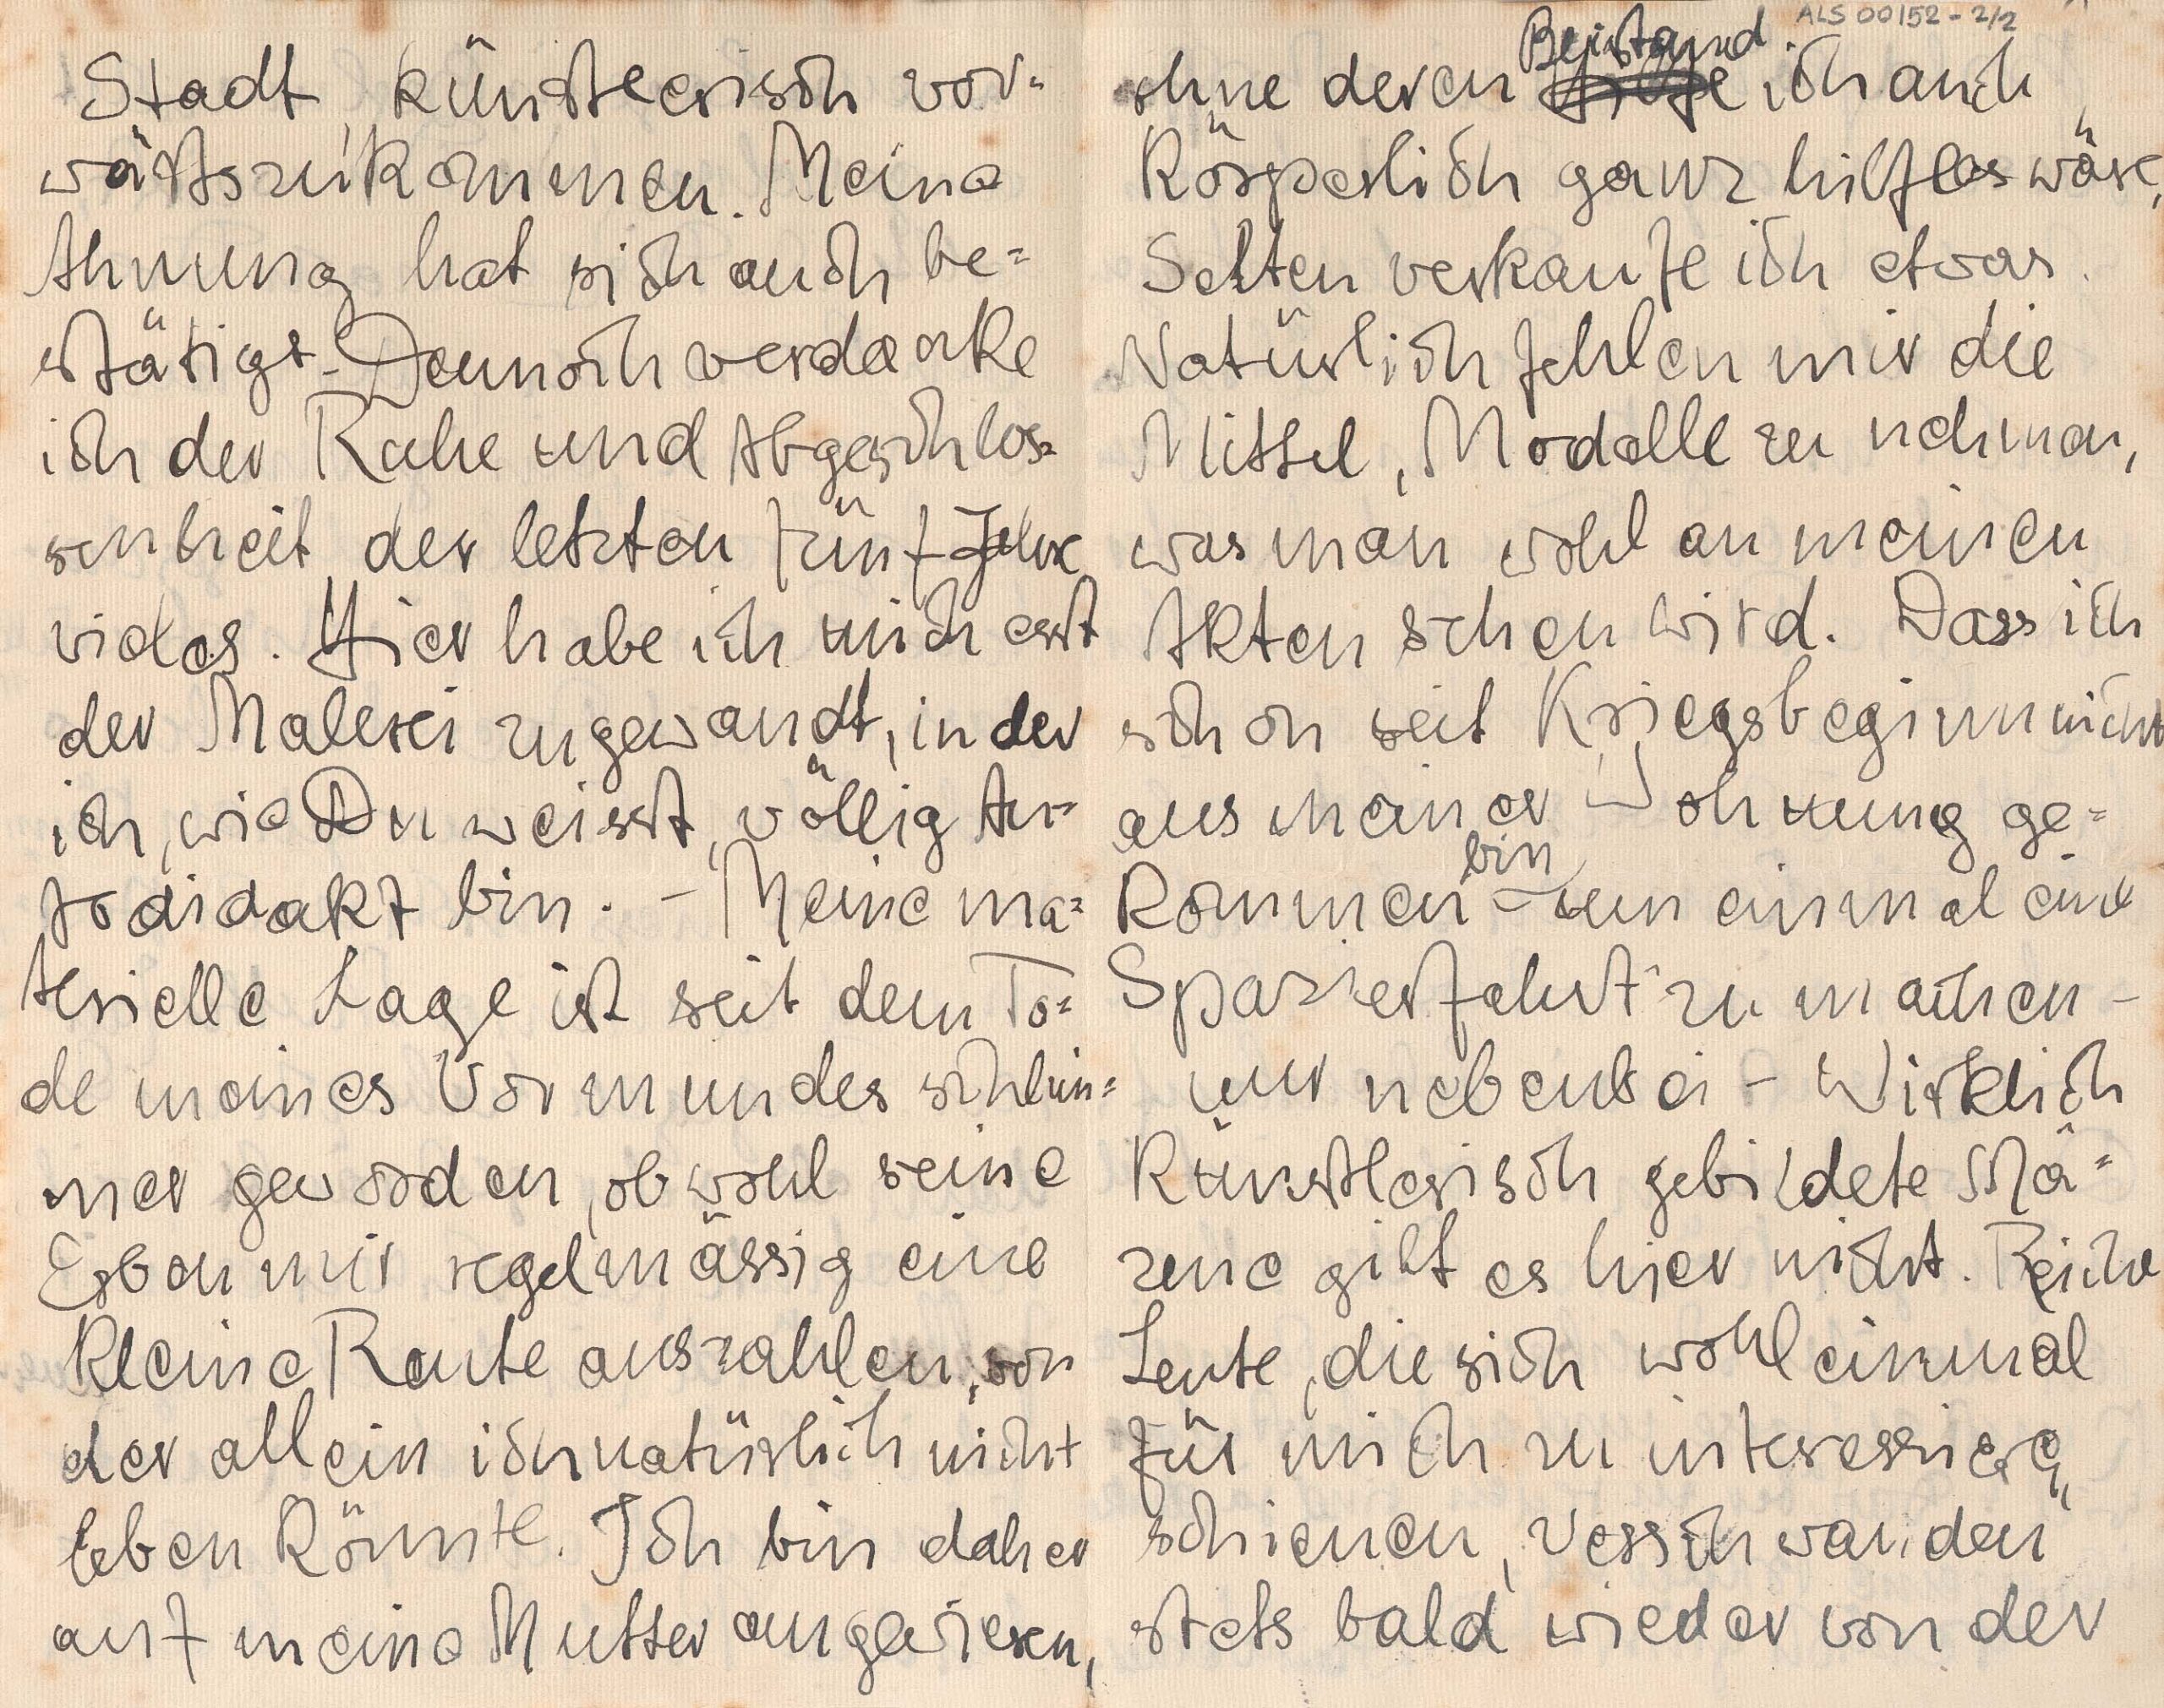 Stadt künstlerisch vor-
wärtszukommen. Meine
Ahnung hat sich auch be=
stätigt. Dennoch verdanke
ich der Ruhe und Abgeschlos=
senheit der letzten fünf Jahre
vieles. Hier habe ich mich erst
der Malerei zugewandt, in der
ich, wie Du weisst, völlig Au=
todidakt bin. - Meine ma=
terielle Lage ist seit dem To=
de meines Vormundes schlim=
mer geworden, obwohl seine
Erben mir regelmässig eine
kleine Rente auszahlen, von
der allein ich natürlich nicht
leben könnte. Ich bin daher
auf meine Mutter angewiesen,
ALS 00152-2/2
Beistand
ohne deren Hilfe ich auch
körperlich ganz hilflos wäre,
Selten verkaufe ich etwas.
Natürlich fehlen mir die
Mittel, Modelle zu nehmen,
was man wohl an meinen
Akten sehen wird. Dass ich
schon seit Kriegsbeginn nicht
aus meiner Wohnung ge=
bin
kommen - um einmal eine
Spazierfahrt zu machen -
nur nebenbei - Wirklich
künstlerisch gebildete Mä=
zene gibt es hier nicht. Reiche
Leute, die sich wohl einmal
für mich zu interessieren
schienen, verschwanden
stets bald wieder von der